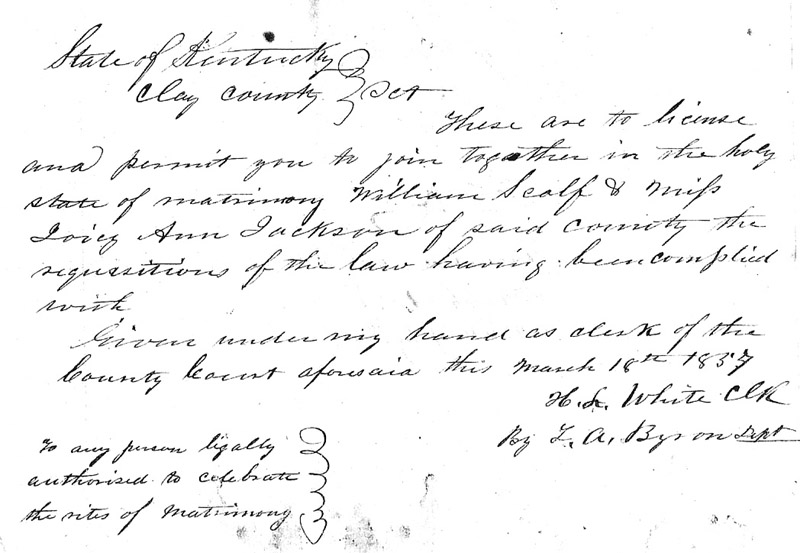 State of Kentucky
Clay County Sct
These are to license
and permit you to join together in the holy
state of matrimony William Scalf & Miss
Joicy Ann Jackson of said county the
requssitions of the law having been complied
with
Given under my hand as clerk of the
County Court aforesaid this March 18th 1857
H. L. White Clk
By L. A. Byron Dept
To any person legally
authorised to celebrate
the rites of matrimony